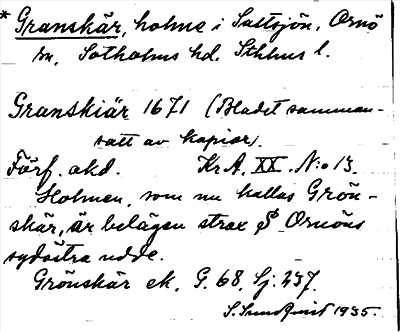 * Granskär, holme i Saltsjön, Ornö
sn, Sotholms hd. Sthlms l.
Granskiär 1671 (Bladet samman-
satt av kopior).
Förf. okd. Kr.A. XX. N:o 13.
Holmen, som nu kallas Grön-
skär, är belägen strax S Ornöns
sydöstra udde.
Grönskär ek. G. 68. Sj. 237.
S. Sundqvist 1935.